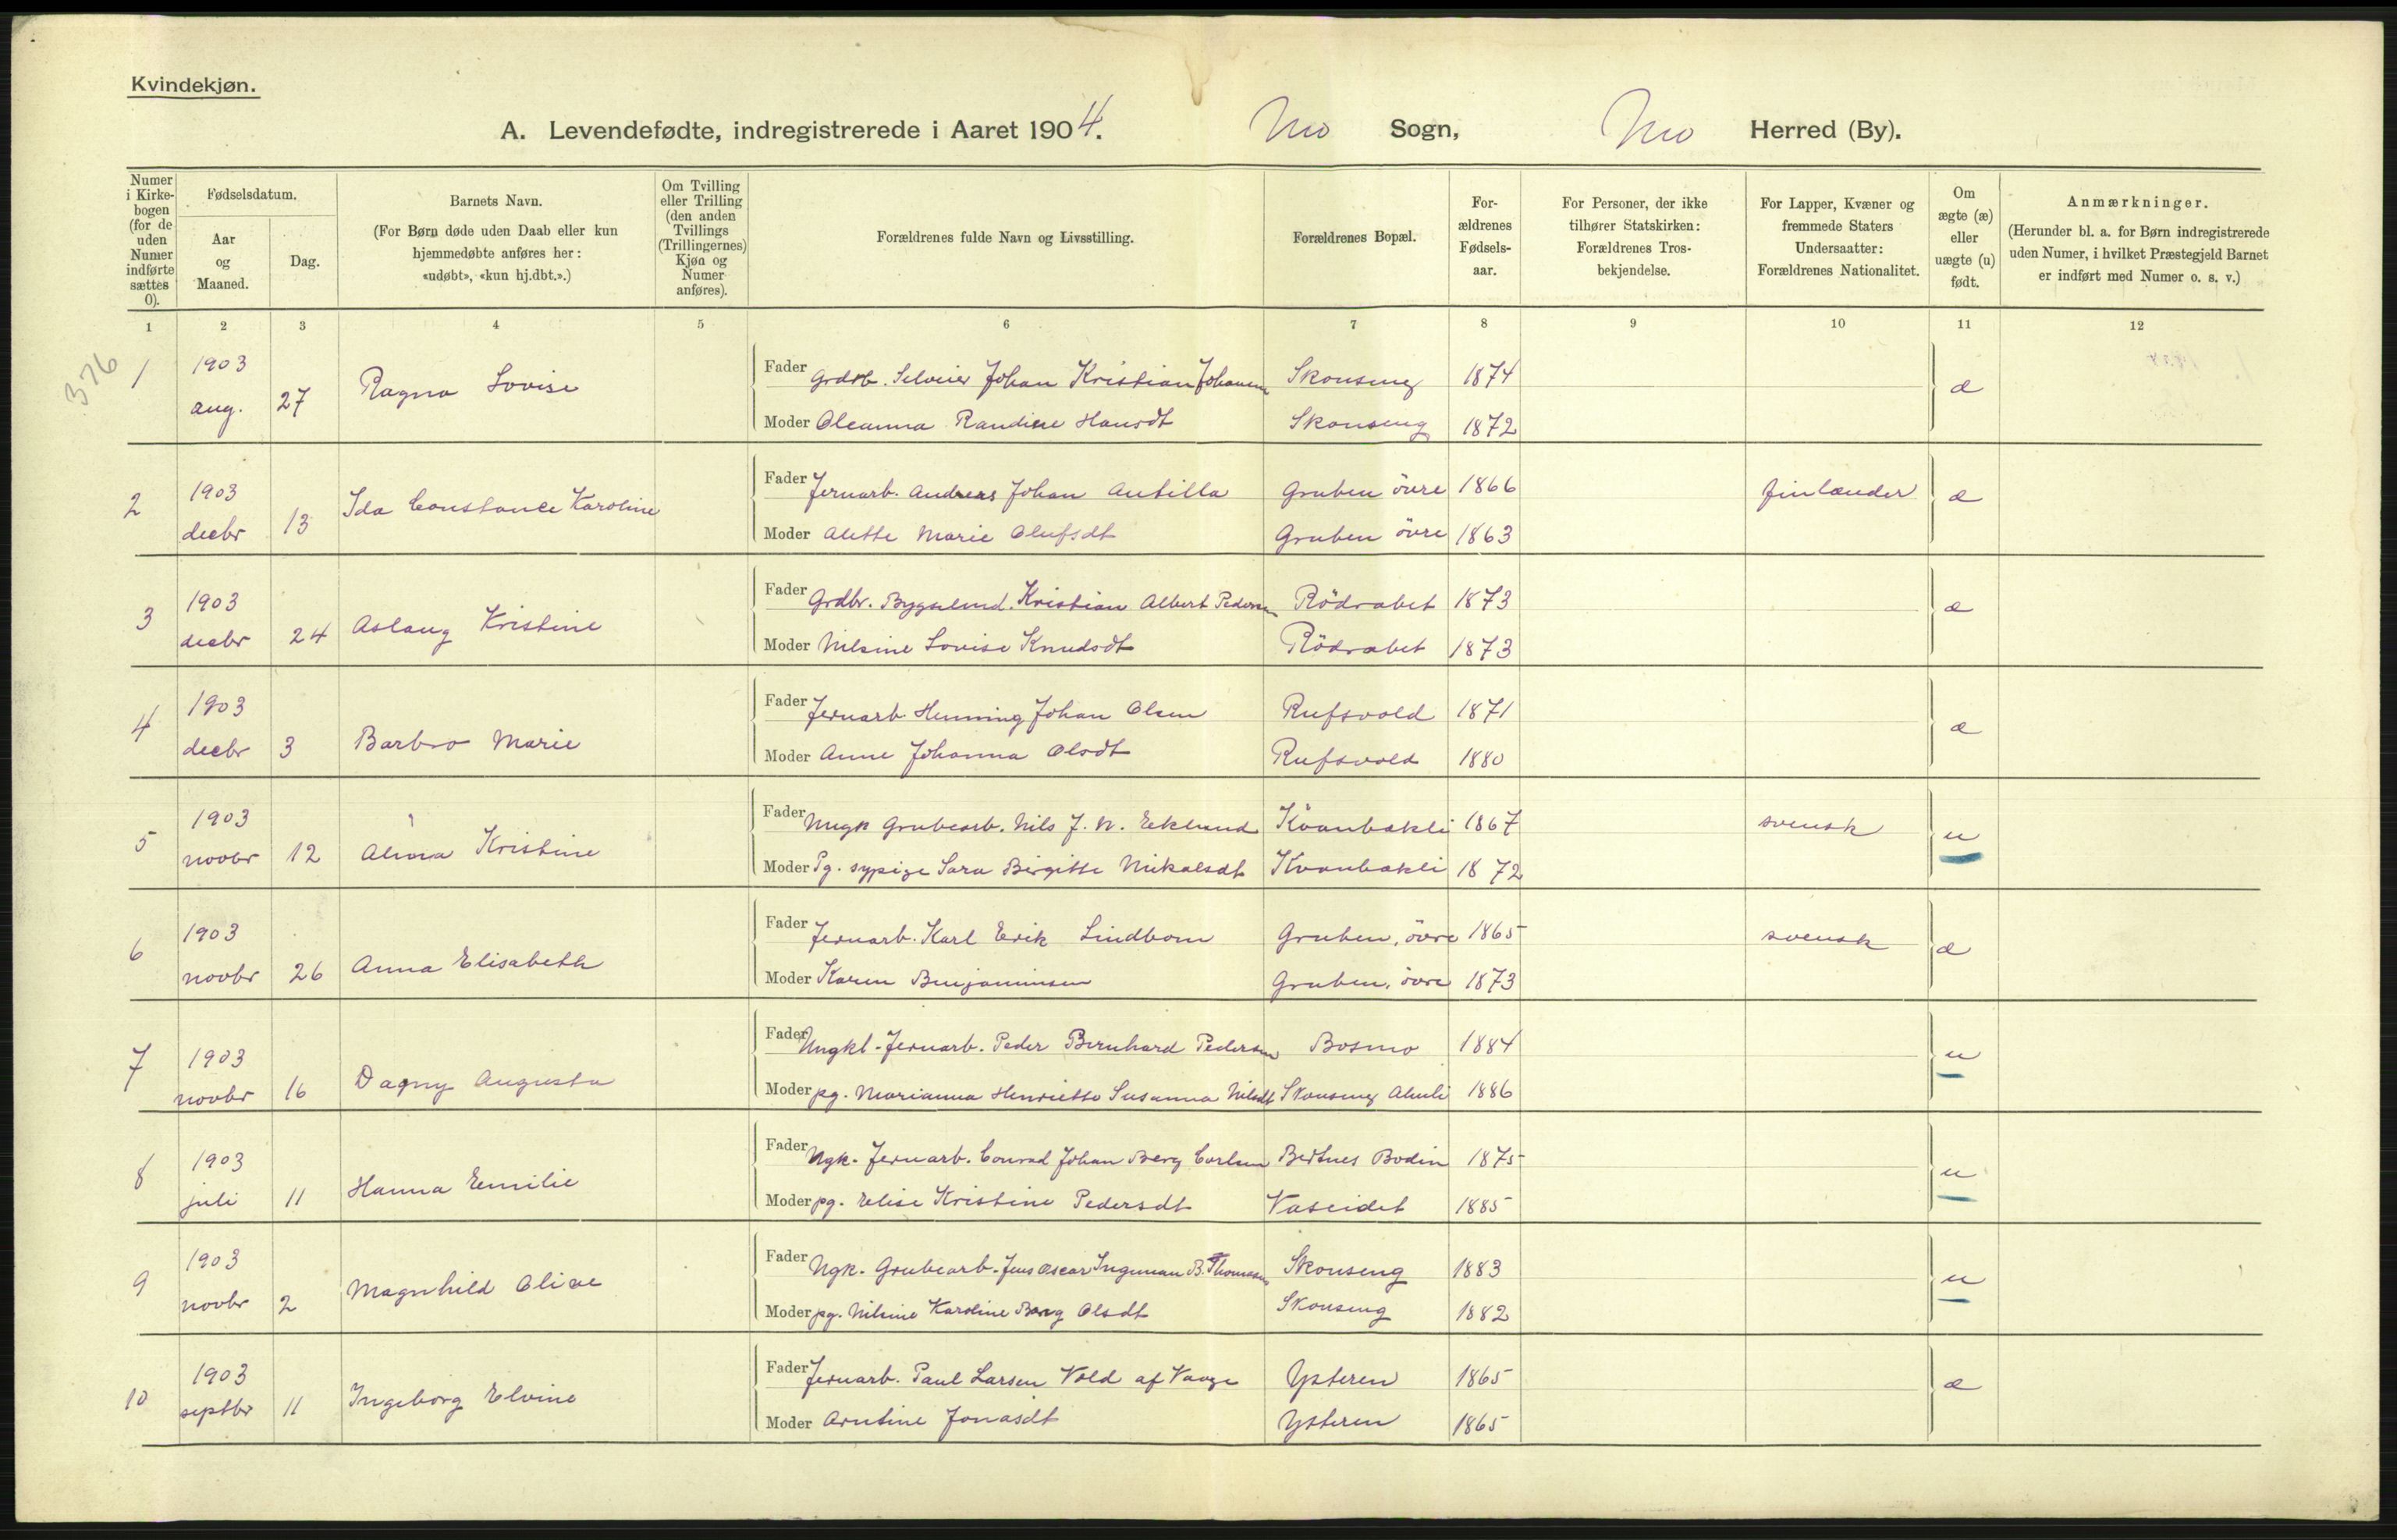 Kvindekjøn.
A. Levendefødte, indregistrerede i Aaret 1904. Mo Sogn, Mo Herred (By).
Numer i Kirkebogen (for de uden Numer indførte sættes 0).
Fødselsdatum.
Aar og Maaned.
Dag.
Barnets Navn.
(For Børn døde uden Daab eller kun hjemmedøbte anføres her: «udøbt», «kun hj.dbt.».)
Om Tvilling eller Trilling (den anden Tvillings (Trillingernes) Kjøn og Numer anføres).
Forældrenes fulde Navn og Livsstilling.
Forældrenes Bopæl.
Forældrenes Fødselsaar.
For Personer, der ikke tilhører Statskirken: Forældrenes Trosbekjendelse.
For Lapper, Kvæner og fremmede Staters Undersaatter: Forældrenes Nationalitet.
Om ægte (æ) eller uægte (u) født.
Anmærkninger.
(Herunder bl. a. for Børn indregistrerede uden Numer, i hvilket Præstegjeld Barnet er indført med Numer o. s. v.)
1 2 3 4 5 6 7 8 9 10 11 12
376
1 1903 aug. 27 Ragna Lovise Fader Grdb. Selveier Johan Kristian Johansen Skonseng 1874 æ
Moder Oleanna Randine Hansdt Skonseng 1872
2 1903 decbr 13 Ida Constance Karoline Fader Jernarb. Andreas Johan Antilla Gruben övre 1866 finlænder æ
Moder Alette Marie Olufsdt Gruben övre 1863
3 1903 decbr 24 Aslaug Kristine Fader Grdbr. Bygselmd. Kristian Albert Pedersen Rödvabet 1873 æ
Moder Nilsine Lovise Knudsdt Rödvabet 1873
4 1903 decbr 3 Barbro Marie Fader Jernarb. Henning Johan Olsen Rufsvold 1871 æ
Moder Anne Johanna Olsdt Rufsvold 1880
5 1903 novbr 12 Alma Kristine Fader Ungk Grubearb. Nils J. N. Eklund Kvanbakli 1867 svensk u
Moder Pg. sypige Sara Birgitte Mikalsdt Kvanbakli 1872
6 1903 novbr 26 Anna Elisabeth Fader Jernarb. Karl Erik Lindbom Gruben, övre 1865 svensk æ
Moder Karen Benjaminsen Gruben, övre 1873
7 1903 novbr 16 Dagny Augusta Fader Ungkl. Jernarb. Peder Bernhard Pedersen Bosmo 1884 u
Moder pg. Marianna Henriette Susanna Nilsdt Skonseng 1886
8 1903 juli 11 Hanna Emilie Fader Ngk. Jernarb. Conrad Johan Berg Carlsen Bertnes Bodin 1875 u
Moder pg. Elise Kristine Pedersdt Vaseidet 1885
9 1903 novbr 2 Magnhild Olive Fader Ngk. Grubearb. Jens Oscar Ingeman B. Thomasen Skonseng 1883 u
Moder pg. Nilsine Karoline Berg Olsdt Skonseng 1882
10 1903 septbr 11 Ingeborg Elvine Fader Jernarb. Paul Larsen Vold af Vaage Ysteren 1865 æ
Moder Arntine Jonasdt Ysteren 1865